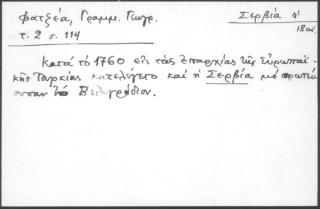 Φατζέα, Γραμμ. Γεωγρ.
τ. 2 σ. 114
Σερβία
18 αι.
Κατά τό 1760 εἰς τάς ἐπαρχίας τῆς Εὐρωπαϊ-
κῆς Τουρκίας κατελέγετο καί ἡ Σερβία μέ πρωτεύ
ουσαν τό Βελιγράδιον.